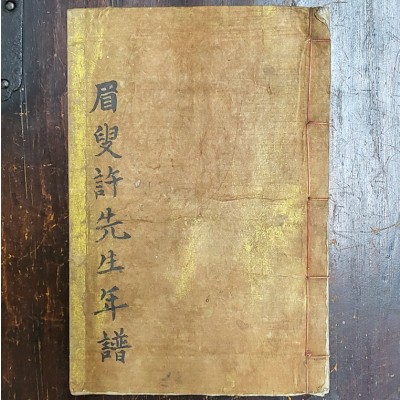 眉叟許先生年譜